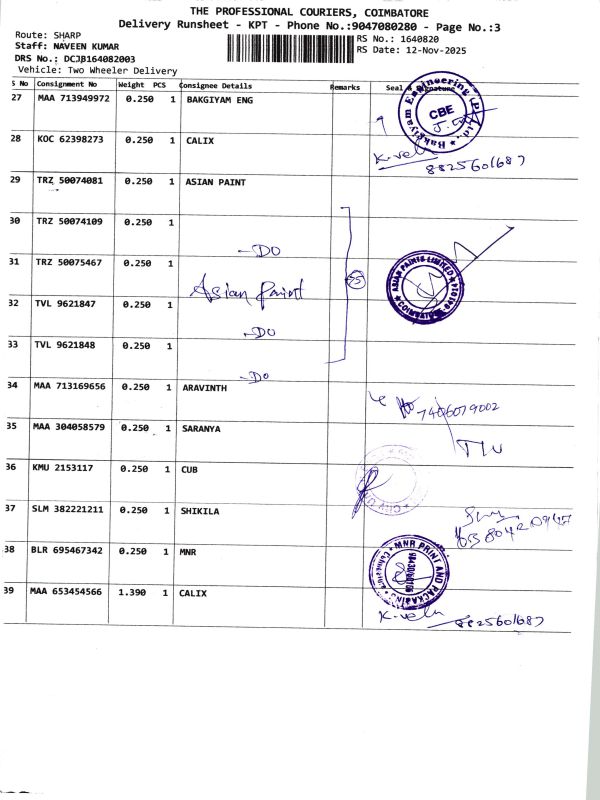 THE PROFESSIONAL COURIERS, COIMBATORE
Delivery Runsheet - KPT - Phone No.:9047080280 - Page No.:3
Route: SHARP
RS No.: 1640820
Staff: NAVEEN KUMAR
RS Date: 12-Nov-2025
DRS No.: DCJB164082003
Vehicle: Two Wheeler Delivery
S No Consignment No Weight PCS Consignee Details Remarks Seal & Signature
27 MAA 713949972 0.250 1 BAKGIYAM ENG
Bakgiyam Engineering (P) Ltd.
CBE
28 KOC 62398273 0.250 1 CALIX
K.velu 8825601687
29 TRZ 50074081 0.250 1 ASIAN PAINT
30 TRZ 50074109 0.250 1
-DO
31 TRZ 50075467 0.250 1
Asian Paint
ASIAN PAINTS LIMITED
COIMBATORE-641024
32 TVL 9621847 0.250 1
-DO
33 TVL 9621848 0.250 1
-DO
34 MAA 713169656 0.250 1 ARAVINTH
7406079002
35 MAA 304058579 0.250 1 SARANYA
36 KMU 2153117 0.250 1 CUB
37 SLM 382221211 0.250 1 SHIKILA
38 BLR 695467342 0.250 1 MNR
MNR PRINT AND PACKAGING
39 MAA 653454566 1.390 1 CALIX
K.velu 8825601687